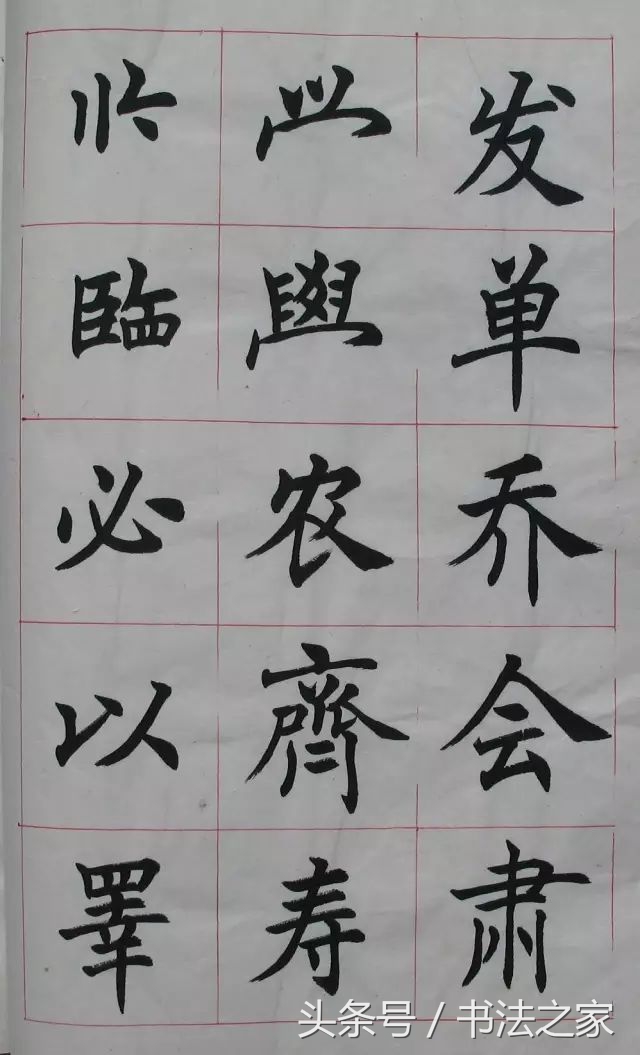 发单乔会肃
农齊寿
臨必以睪
头条号 / 书法之家